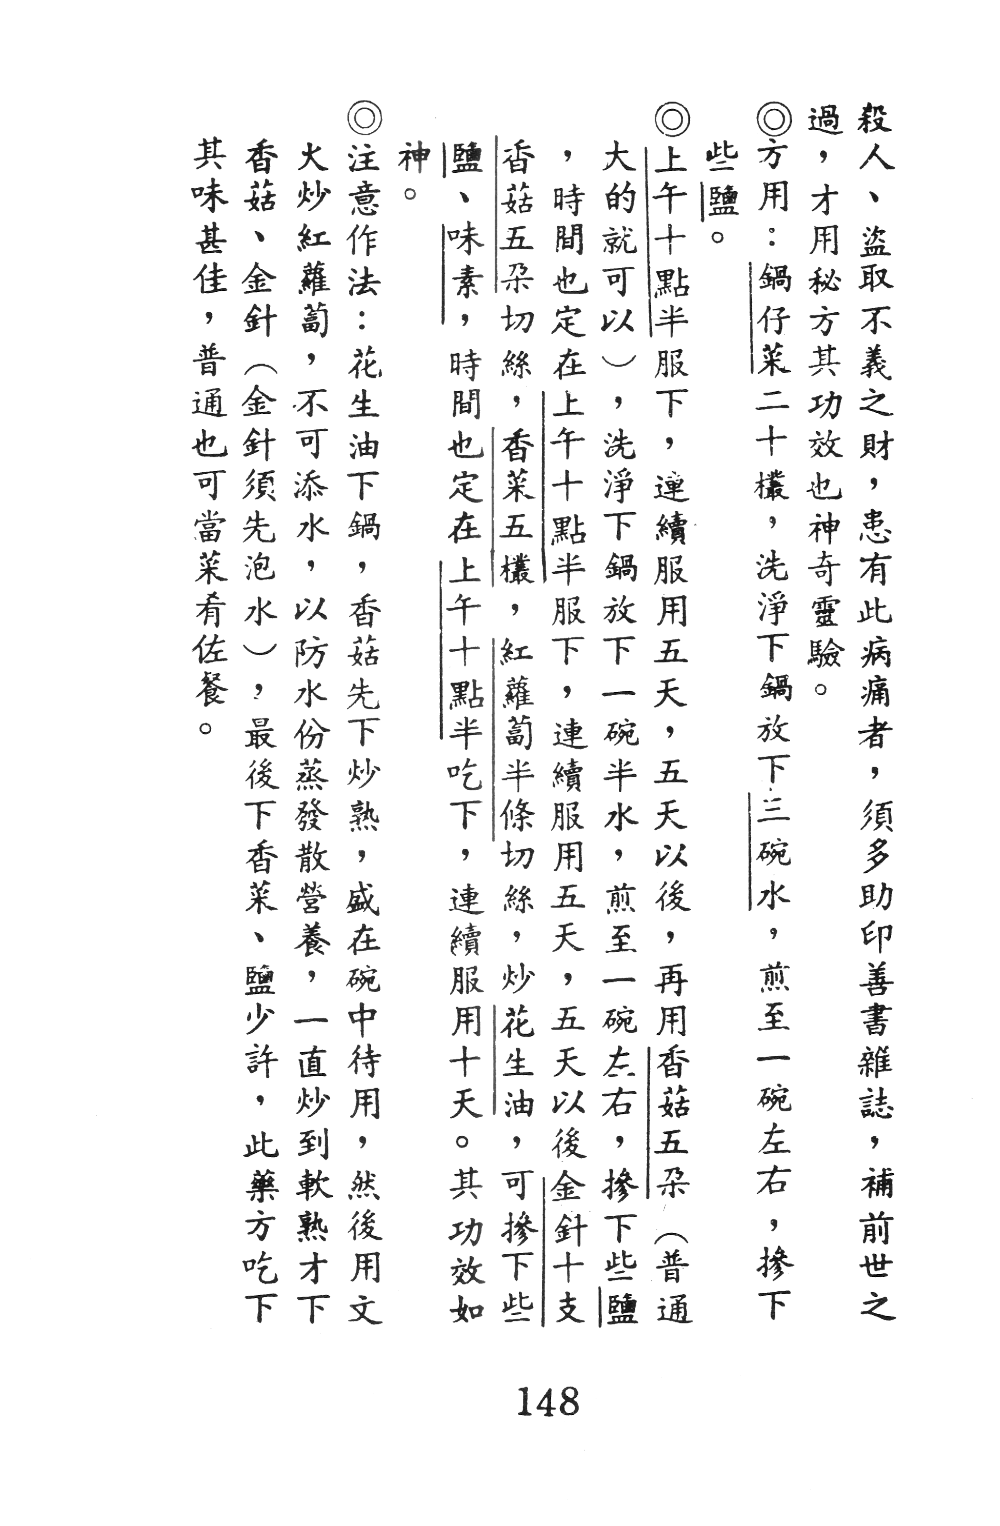 殺人、盜取不義之財，患有此病痛者，須多助印善書雜誌，補前世之
過，才用秘方其功效也神奇靈驗。
◎方用：鍋仔菜二十欉，洗淨下鍋放下三碗水，煎至一碗左右，摻下
些鹽。
◎上午十點半服下，連續服用五天，五天以後，再用香菇五朶（普通
大的就可以），洗淨下鍋放下一碗半水，煎至一碗左右，摻下些鹽
，時間也定在上午十點半服下，連續服用五天，五天以後金針十支
香菇五朶切絲，香菜五欉，紅蘿蔔半條切絲，炒花生油，可摻下些
鹽、味素，時間也定在上午十點半吃下，連續服用十天。其功效如
神。
◎注意作法：花生油下鍋，香菇先下炒熟，盛在碗中待用，然後用文
火炒紅蘿蔔，不可添水，以防水份蒸發散營養，一直炒到軟熟才下
香菇、金針（金針須先泡水），最後下香菜、鹽少許，此藥方吃下
其味甚佳，普通也可當菜肴佐餐。
148